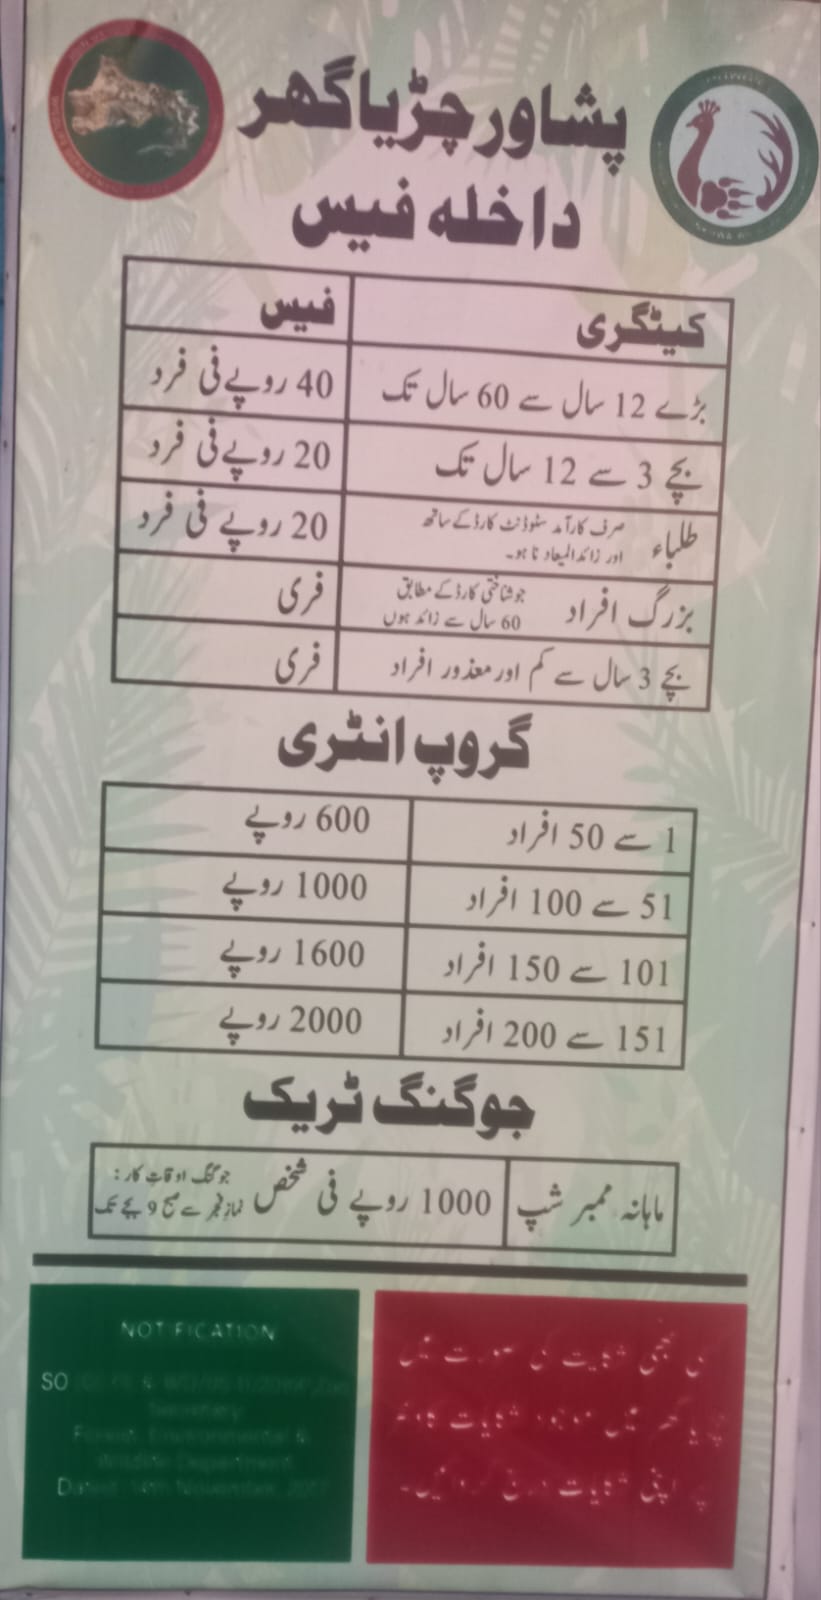 پشاور چڑیا گھر
داخلہ فیس
کیٹگری فیس
بڑے 12 سال سے 60 سال تک 40 روپے فی فرد
بچے 3 سے 12 سال تک 20 روپے فی فرد
طلباء صرف کارآمد سٹوڈنٹ کارڈ کے ساتھ 20 روپے فی فرد
اور زائد المیعاد نا ہو۔
بزرگ افراد جو شناختی کارڈ کے مطابق فری
60 سال سے زائد ہوں
بچے 3 سال سے کم اور معذور افراد فری
گروپ انٹری
1 سے 50 افراد 600 روپے
51 سے 100 افراد 1000 روپے
101 سے 150 افراد 1600 روپے
151 سے 200 افراد 2000 روپے
جوگنگ ٹریک
ماہانہ ممبر شپ 1000 روپے فی شخص جوگنگ اوقات کار:
نماز فجر سے صبح 9 بجے تک
کسی بھی شکایت کی صورت میں
چڑیا گھر میں موجود شکایات کاونٹر
پر اپنی شکایات درج کروائیں۔
NOTIFICATION
SO
Secretary
Forest, Environmental &
Wildlife Department
Dated November